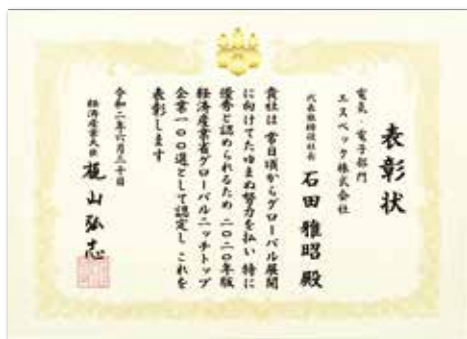 表彰状
電気・電子部門
エスペック株式会社
代表取締役社長 石田雅昭殿
貴社は 常日頃からグローバル展開
に向けてたゆまぬ努力を払い 特に
優秀と認められるため 二〇二〇年版
経済産業省グローバルニッチトップ
企業一〇〇選として認定し これを
表彰します
令和二年六月三十日
経済産業大臣 梶山弘志